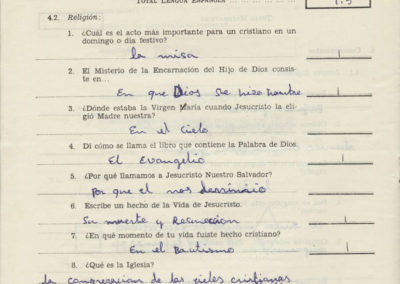 TOTAL LENGUA ESPAÑOLA
4.2. Religión:
1. ¿Cuál es el acto más importante para un cristiano en un
domingo o día festivo?
la misa
1
2. El Misterio de la Encarnación del Hijo de Dios consis-
te en...
En que Dios se hizo hombre
1
3. ¿Dónde estaba la Virgen María cuando Jesucristo la eli-
gió Madre nuestra?
En el Cielo
1
4. Di cómo se llama el libro que contiene la Palabra de Dios.
El Evangelio
1
5. ¿Por qué llamamos a Jesucristo Nuestro Salvador?
Por que el nos
1
6. Escribe un hecho de la Vida de Jesucristo.
Su muerte y
1
7. ¿En qué momento de tu vida fuiste hecho cristiano?
En el Bautismo
1
8. ¿Qué es la Iglesia?
la congregacion de los fieles cristianos